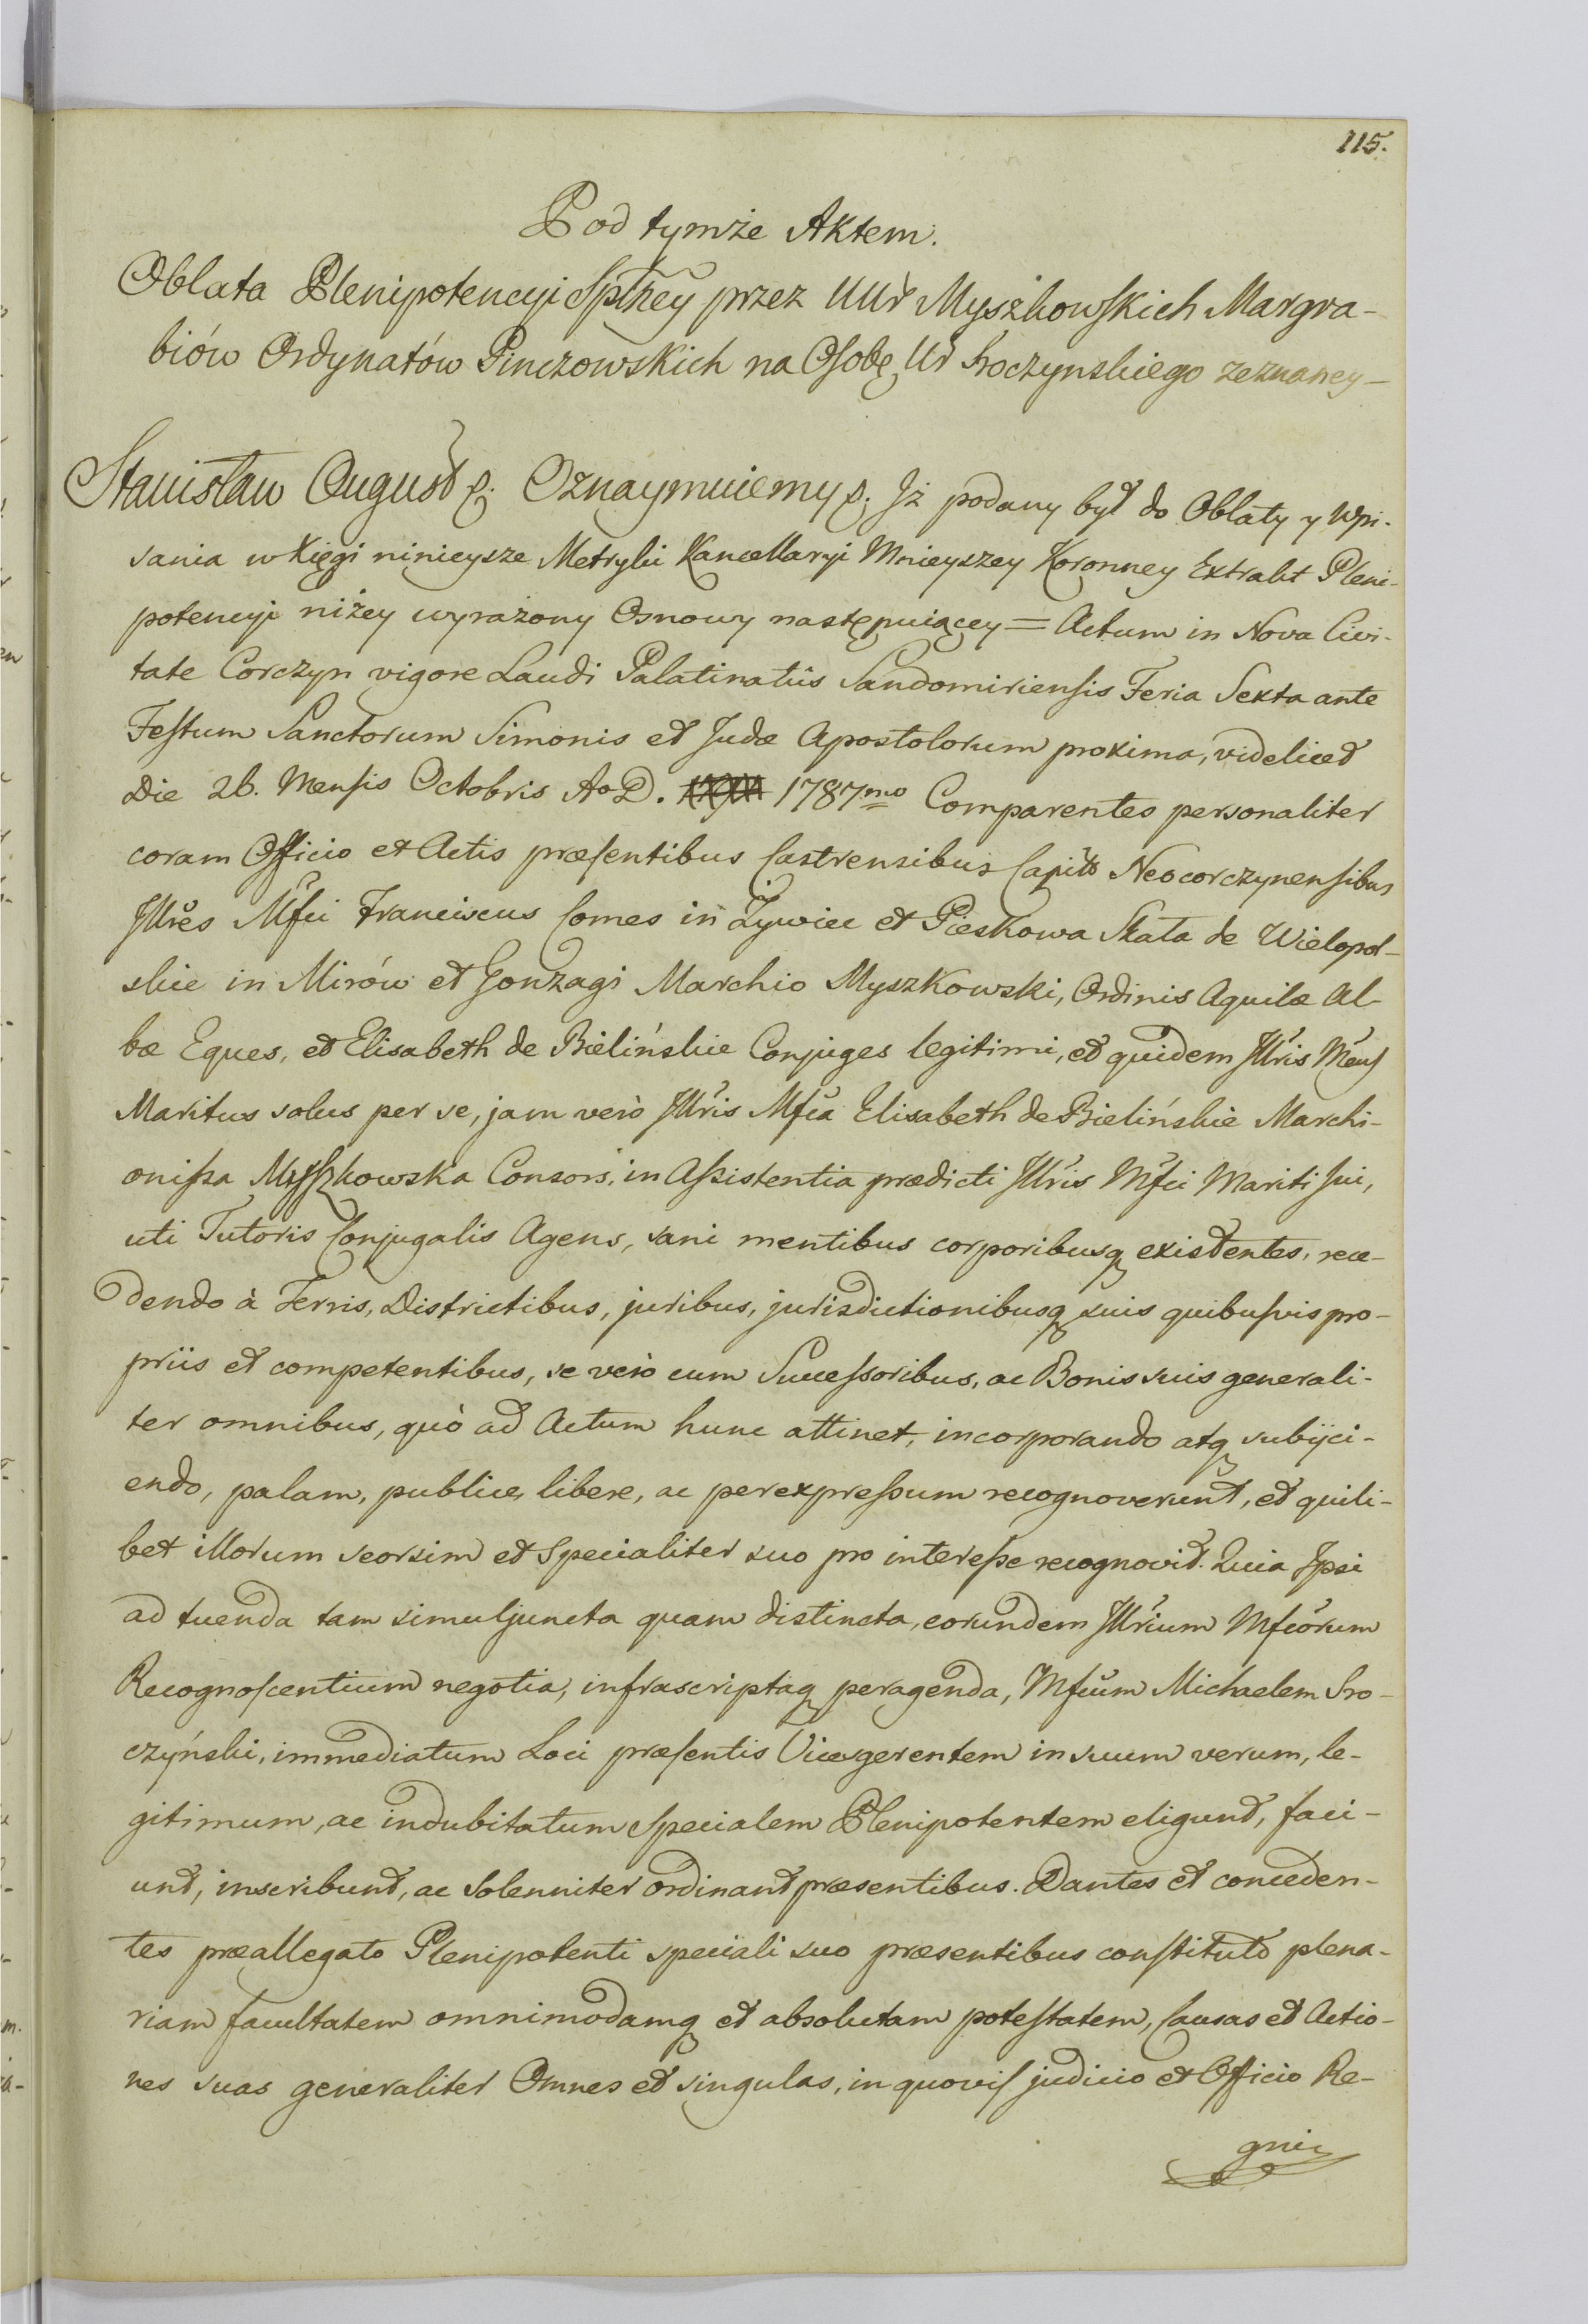 115.
Pod tymże Aktem.
Oblata Plenipotencyi Spłney przez UUr Myszkowskich Margra-
biów Ordynatów Pinczowskich na Osobę Ur Sroczynskiego zeznaney—
Stanisław August p. Oznaymuiemy p. Jż podany był do Oblaty y Wpi-
sania w Xięgi ninieysze Metryki Kancellaryi Mnieyszey Koronney Extrakt Pleni-
potencyi niżey wyrażony Osnowy następuiącey = Actum in Nova Civi-
tate Corczyn vigore Laudi Palatinatûs Sandomiriensis Feria Sexta ante
Festum Sanctorum Simonis et Judæ Apostolorum proxima, videlicet
Die 26. Mensis Octobris Ao D. 1787mo Comparentes personaliter
coram Officio et Actis præsentibus Castrensibus Capitt Neocorczynensibus
Jllres Mfci Franciscus Comes in Żywiec et Pieskowa Skała de Wielopol-
skie in Mirów et Gonzagi Marchio Myszkowski, Ordinis Aquilæ Al-
bæ Eques, et Elisabeth de Bielińskie Conjuges legitimi, et quidem Jllris Mcus
Maritus solus per se, jam verò Jllris Mfca Elisabeth de Bielińskie Marchi-
onissa Myszkowska Consors, in Assistentia prædicti Jllris Mfci Mariti sui,
uti Tutoris Conjugalis Agens, sani mentibus corporibusq existentes, rece-
dendo à Terris, Districtibus, juribus, jurisdictionibusq suis quibusvis pro-
priis et competentibus, se verò cum Successoribus, ac Bonis suis generali-
ter omnibus, quò ad Actum hunc attinet, incorporando atq subijci-
endo, palam, publice, libere, ac per expressum recognoverunt, et quili-
bet illorum seorsim et Specialiter suo pro interesse recognovit. Quia Jpsi
ad tuenda tam simul juncta quam distincta, eorundem Jllrium Mfcorum
Recognoscentium negotia, infrascriptaq peragenda, Mfcum Michaelem Sro-
czyński, immediatum Loci præsentis Vicesgerentem in suum verum, le-
gitimum, ac indubitatum specialem Plenipotentem eligunt, faci-
unt, inscribunt, ac solenniter ordinant præsentibus. Dantes et conceden-
tes præallegato Plenipotenti speciali suo præsentibus constituto plena-
riam facultatem omnimodamq et absolutam potestatem, Causas et Actio-
nes suas generaliter Omnes et singulas, in quovis judicio et Officio Re-
gni